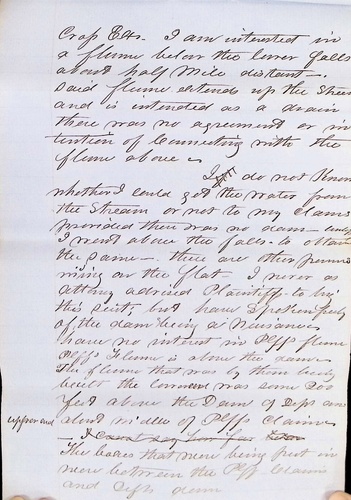 Cross Ex. I am interested in
a flume below the lower falls
about half mile distant—.
Said flume extends up the Stream
and is intended as a drain
there was no agreement or in
tention of Connecting with the
flume above.
I do not Know
whether I could get the water from
the Stream or not to my claims
provided there was no dam—
I went above the falls to obtain
the same— there are other persons
mining on the flat. I never as
attny advised Plaintiffs to bring
this suit, but have spoken
of the dam being a Nuisance.
have no interest in Plffs flume
Plffs Flume is above the dam.
The flume that was by them
built the Comment was some 200
feet above the Dam of Defs and
upper end about middle of Plffs Claim
—
The boxes that were being put in
were between the Plffs Claims
and Defs dam